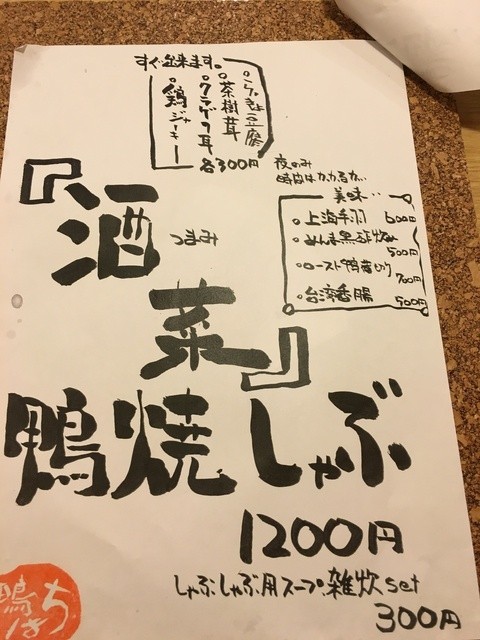 すぐ出来ます。
。らっきょ豆腐
。茶樹茸
。クラゲの耳
。鶏ジャーキー
各300円
夜のみ
時間はかかるが…
美味…
。上海手羽 600円
。めんま黒酢炊み 500円
。ロースト鴨薄切り 700円
。台湾香腸 500円
『酒
つまみ
菜』
鴨焼しゃぶ
1200円
しゃぶしゃぶ用スープ、雑炊set
300円
鴨はち